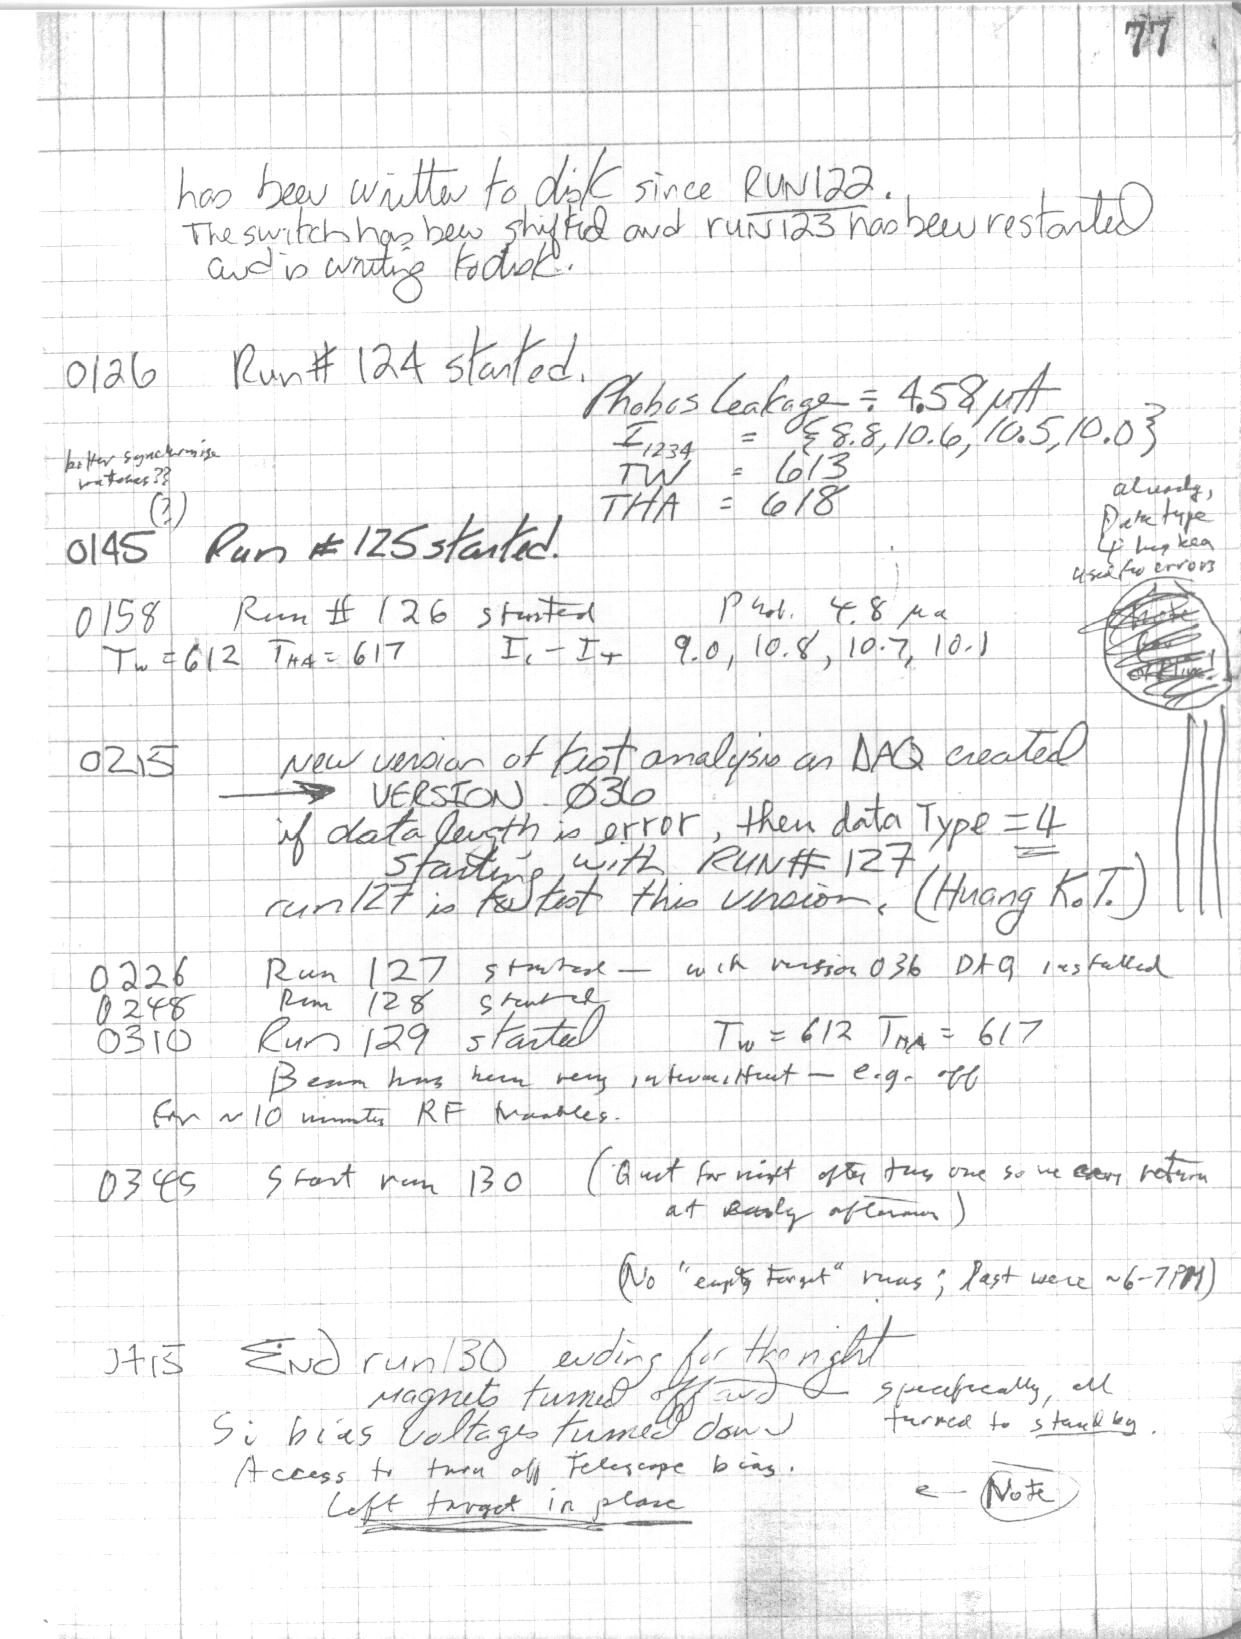 77
has been written to disk since RUN122.
The switch has been shifted and run123 has been restarted
and is writing to disk.
0126 Run# 124 started.
Phobos Leakage = 4.58 μA
I1234 = {8.8, 10.6, 10.5, 10.0}
TW = 613
THA = 618
better synchronise
watches??
(?)
0145 Run #125 started.
already,
Data type
4 has been
used for errors
0158 Run # 126 started Phob. 4.8 μa
Tw = 612 THA = 617 I1 - I4 9.0, 10.8, 10.7, 10.1
note
for
offline!
0215 New version of test analysis on DAQ created
→ VERSION 036
if data length is error, then data Type = 4
starting with RUN# 127
run127 is to test this version. (Huang K.T.)
0226 Run 127 started — with version 036 DAQ installed
0248 Run 128 started
0310 Run 129 started Tw = 612 THA = 617
Beam has been very intermittent — e.g. off
for ~10 minutes RF troubles.
0345 Start run 130 (Quit for night after this one so we can return
at early afternoon)
(No "empty target" runs; last were ~6-7PM)
0415 End run130 ending for the night
magnets turned off and specifically, all
turned to standby.
Si bias voltages turned down
Access to turn off Telescope bias.
Left target in place ← Note